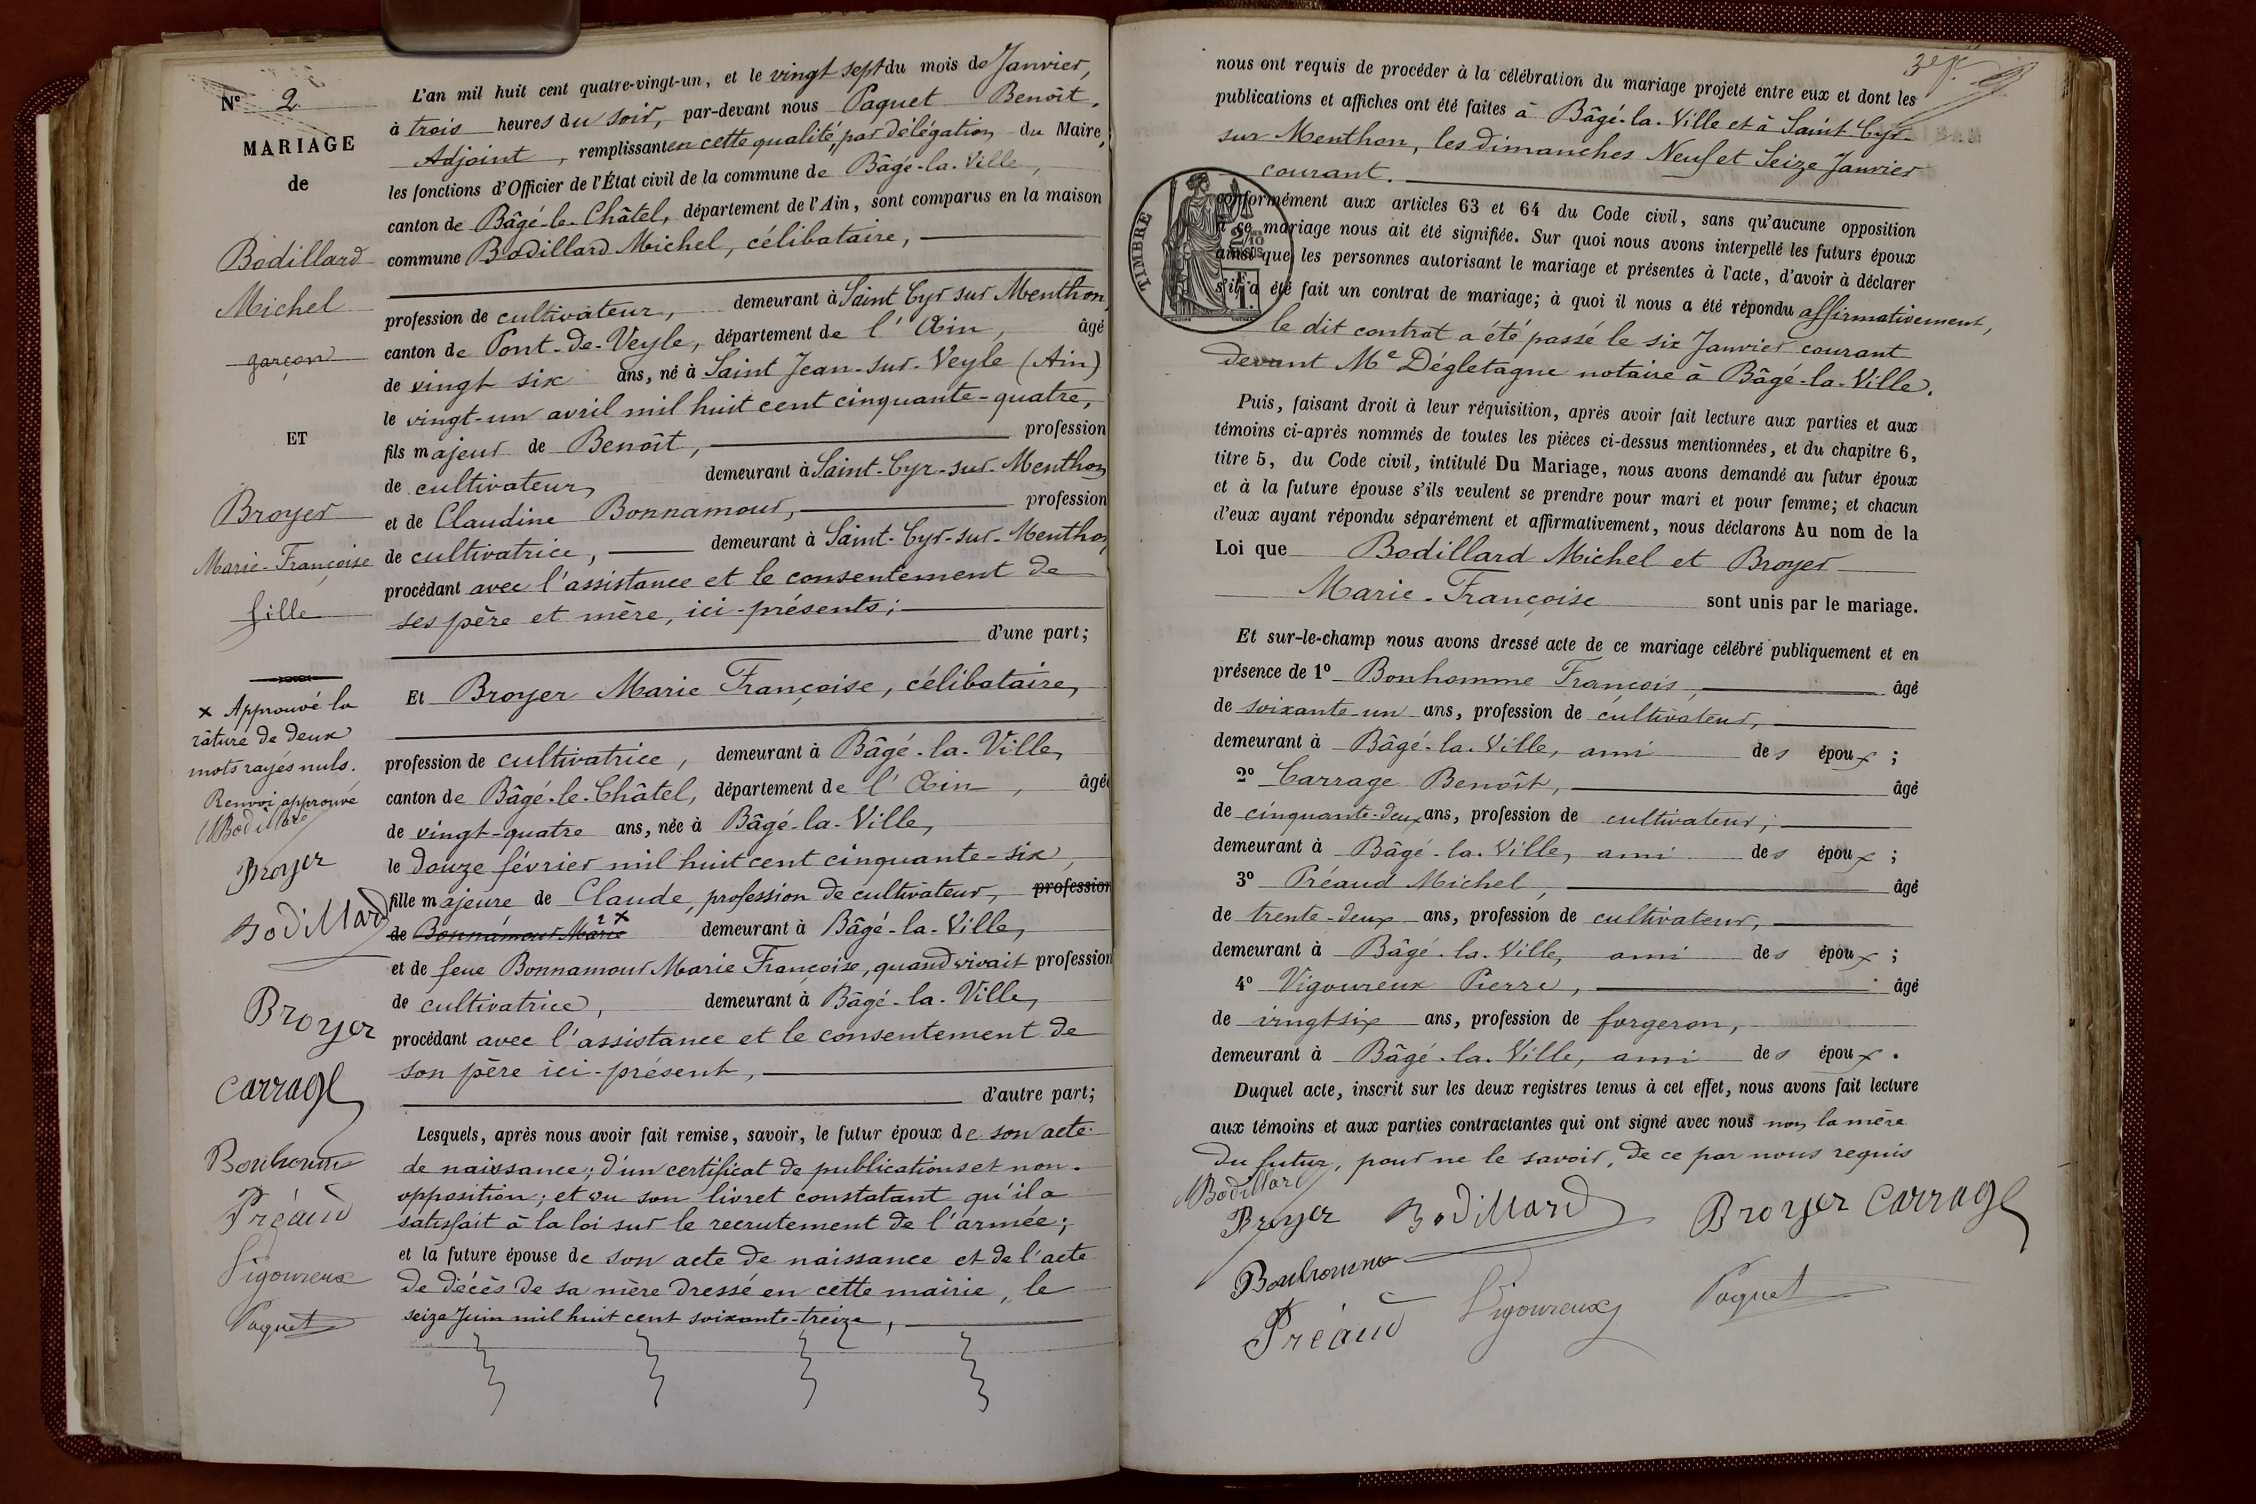 N° 2
MARIAGE
de
Bodillard
Michel
garçon
ET
Broyer
Marie-Françoise
fille
x Approuvé la
râture de deux
mots rayés nuls.
Renvoi approuvé
MBodillard
Broyer
Bodillard
Broyer
Carrage
Bonhomme
Préaud
Vigoureux
Paquet
L'an mil huit cent quatre-vingt-un, et le vingt sept du mois de Janvier,
à trois heures du soir, par-devant nous Paquet Benoît,
Adjoint, remplissant en cette qualité, par délégation du Maire,
les fonctions d'Officier de l'État civil de la commune de Bâgé-la-Ville,
canton de Bâgé-le-Châtel, département de l'Ain, sont comparus en la maison
commune Bodillard Michel, célibataire,
profession de cultivateur, demeurant à Saint Cyr sur Menthon,
canton de Pont-de-Veyle, département de l'Ain, âgé
de vingt six ans, né à Saint Jean-sur-Veyle (Ain)
le vingt-un avril mil huit cent cinquante-quatre,
fils majeur de Benoît, profession
de cultivateur, demeurant à Saint-Cyr-sur-Menthon
et de Claudine Bonnamour, profession
de cultivatrice, demeurant à Saint-Cyr-sur-Menthon
procédant avec l'assistance et le consentement de
ses père et mère, ici-présents;
d'une part;
Et Broyer Marie Françoise, célibataire,
profession de cultivatrice, demeurant à Bâgé-la-Ville,
canton de Bâgé-le-Châtel, département de l'Ain, âgée
de vingt-quatre ans, née à Bâgé-la-Ville,
le douze février mil huit cent cinquante-six,
fille majeure de Claude, profession de cultivateur, profession
de Bonnamour Marie x demeurant à Bâgé-la-Ville,
et de feue Bonnamour Marie Françoise, quand vivait profession
de cultivatrice, demeurant à Bâgé-la-Ville,
procédant avec l'assistance et le consentement de
son père ici-présent,
d'autre part;
Lesquels, après nous avoir fait remise, savoir, le futur époux de son acte
de naissance; d'un certificat de publications et non-
opposition; et vu son livret constatant qu'il a
satisfait à la loi sur le recrutement de l'armée;
et la future épouse de son acte de naissance et de l'acte
de décès de sa mère dressé en cette mairie, le
seize Juin mil huit cent soixante-treize,
nous ont requis de procéder à la célébration du mariage projeté entre eux et dont les
publications et affiches ont été faites à Bâgé-la-Ville et à Saint Cyr-
sur Menthon, les dimanches Neuf et Seize Janvier
courant.
conformément aux articles 63 et 64 du Code civil, sans qu'aucune opposition
à ce mariage nous ait été signifiée. Sur quoi nous avons interpellé les futurs époux
ainsi que les personnes autorisant le mariage et présentes à l'acte, d'avoir à déclarer
s'il a été fait un contrat de mariage; à quoi il nous a été répondu affirmativement,
le dit contrat a été passé le six Janvier courant
devant Me Dégletagne notaire à Bâgé-la-Ville.
TIMBRE
Puis, faisant droit à leur réquisition, après avoir fait lecture aux parties et aux
témoins ci-après nommés de toutes les pièces ci-dessus mentionnées, et du chapitre 6,
titre 5, du Code civil, intitulé Du Mariage, nous avons demandé au futur époux
et à la future épouse s'ils veulent se prendre pour mari et pour femme; et chacun
d'eux ayant répondu séparément et affirmativement, nous déclarons Au nom de la
Loi que Bodillard Michel et Broyer
Marie-Françoise sont unis par le mariage.
Et sur-le-champ nous avons dressé acte de ce mariage célébré publiquement et en
présence de 1° Bonhomme François, âgé
de soixante-un ans, profession de cultivateur,
demeurant à Bâgé-la-Ville, ami des époux;
2° Carrage Benoît, âgé
de cinquante-deux ans, profession de cultivateur;
demeurant à Bâgé-la-Ville, ami des époux;
3° Préaud Michel, âgé
de trente-deux ans, profession de cultivateur,
demeurant à Bâgé-la-Ville, ami des époux;
4° Vigoureux Pierre, âgé
de vingtsix ans, profession de forgeron,
demeurant à Bâgé-la-Ville, ami des époux.
Duquel acte, inscrit sur les deux registres tenus à cet effet, nous avons fait lecture
aux témoins et aux parties contractantes qui ont signé avec nous non la mère
du futur, pour ne le savoir, de ce par nous requis
MBodillard
Broyer Bodillard Broyer Carrage
Bonhomme
Préaud Vigoureux Paquet